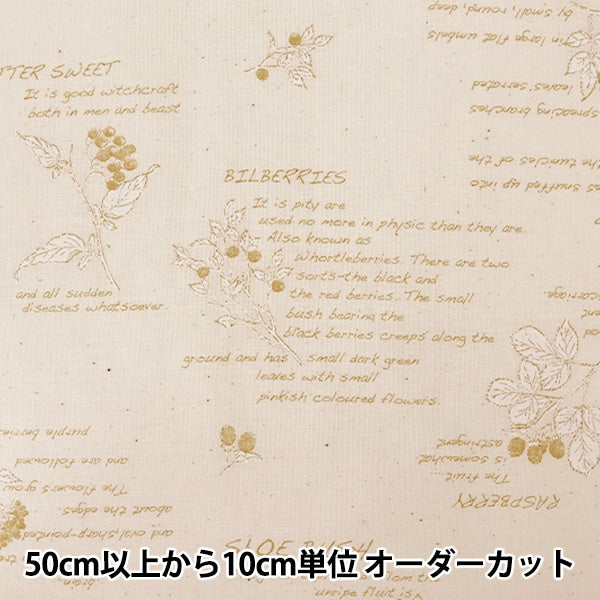 by small, round, deep
in large flat umbels
leaves serrated
spreading branches
the tunicles of the
snuffed up into
TTER SWEET
It is good witchcraft
both in men and beast
and all sudden
diseases whatsoever
BILBERRIES
It is pity are
used no more in physic than they are.
Also known as
Whortleberries. There are two
sorts-the black and
the red berries. The small
bush bearing the
black berries creeps along the
ground and has small dark green
leaves with small
pinkish coloured flowers.
RASPBERRY
The fruit...
is somewhat
astringent
and oval, sharp-pointed
about the edges
The flowers grow
and are followed
purple berries
SLOE BUSH
unripe fruit is
50cm以上から10cm単位 オーダーカット